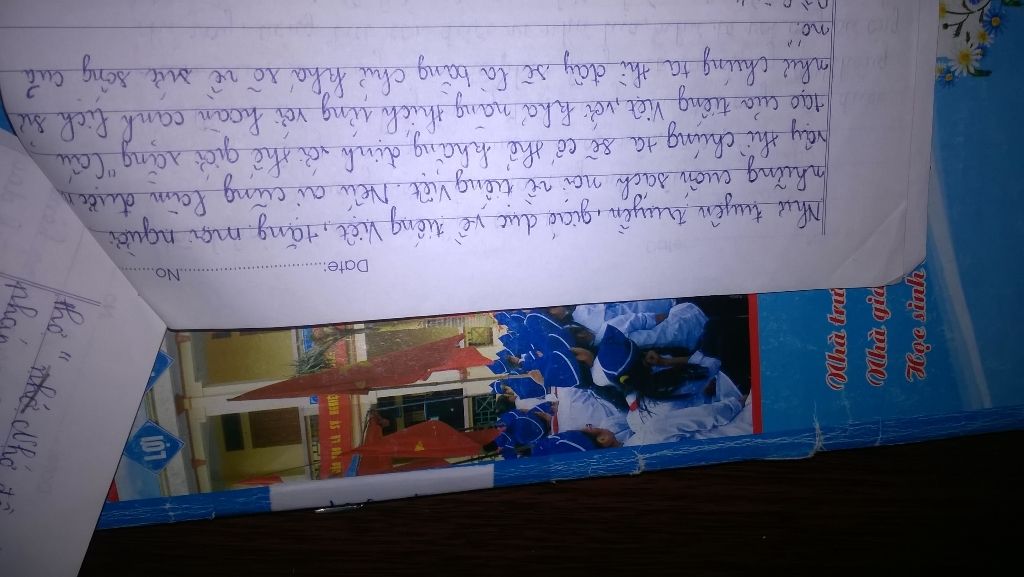 Date: No
Như tuyên truyền, giáo dục về tiếng Việt, tặng mọi người
những cuốn sách nói về tiếng Việt. Nếu ai cũng làm được
vậy thì chúng ta sẽ có thể khẳng định với thế giới rằng "Cấu
tạo của tiếng Việt, với khả năng thích ứng với hoàn cảnh lịch sử
như chúng ta thì đây sẽ là bằng chứ khá rõ về sức sống của
nó."
thể "nhớ chữ
Nhà trư
Nhà gia
Học sinh